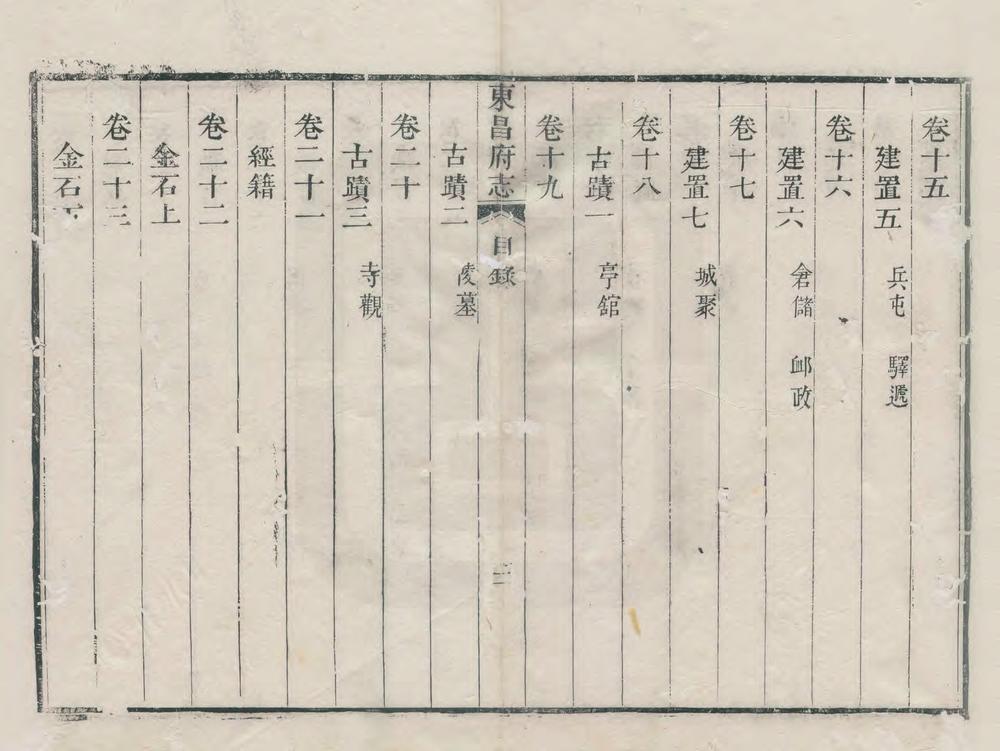 卷十五
建置五 兵屯 驛遞
卷十六
建置六 倉儲 䘏政
卷十七
建置七 城聚
卷十八
古蹟一 亭館
卷十九
東昌府志 目錄 二
古蹟二 陵墓
卷二十
古蹟三 寺觀
卷二十一
經籍
卷二十二
金石上
卷二十三
金石下